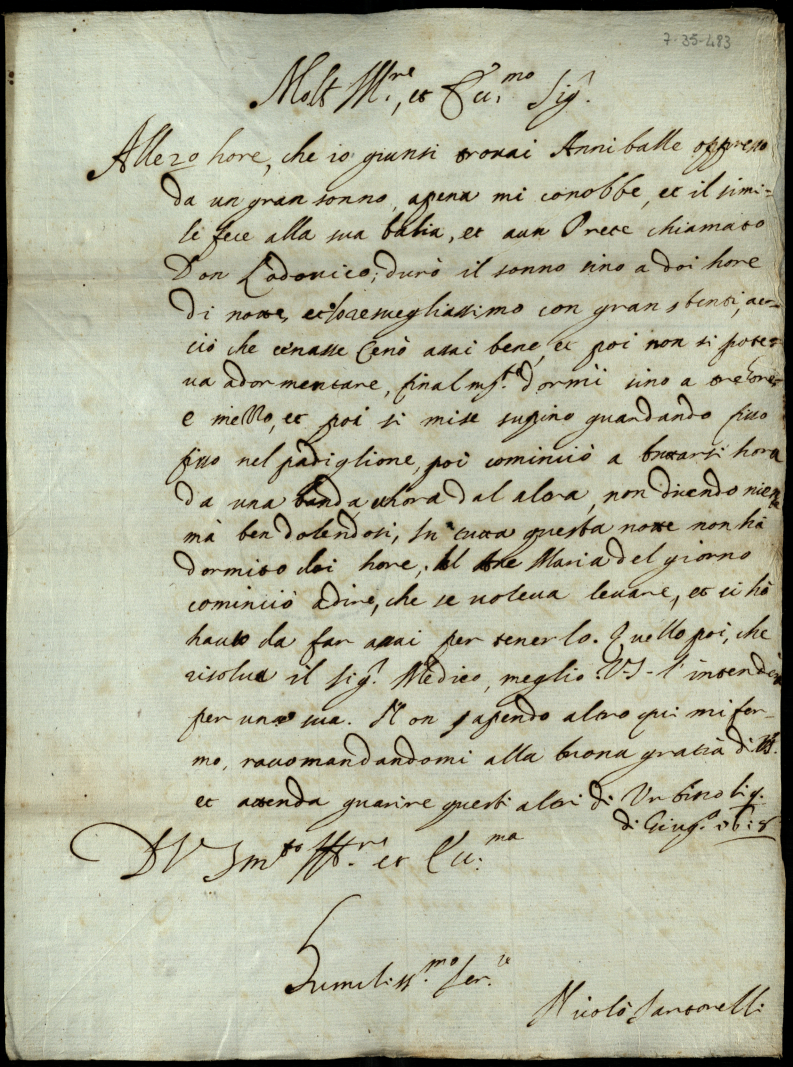 7-35-483
Molt Ill.re, et Ecc.mo Sig.r
Alle 20 hore, che io giunsi trovai Anniballe oppresso
da un gran sonno, apena mi conobbe, et il simi-
le fece alla sua balia, et a un Prete chiamato
Don Lodovico; durò il sonno sino a doi hore
di notte, et lo resvegliassimo con gran stenti, ac-
ciò che cenasse Cenò assai bene, et poi non si pote-
va adormentare, finalm.te dormì sino a tre hore
e mezzo, et poi si mise supino guardando fisso
fisso nel padiglione, poi cominciò a butarsi hora
da una banda, et hora dal altra, non dicendo niente
mà ben dolendosi, In tutta questa notte non hà
dormito doi hore, Al Ave Maria del giorno
cominciò a dire, che se voleva levare, et ci hò
hauto da far assai per tenerlo. Quello poi, che
risolva il Sig.r Medico, meglio V.S. l'intenderà
per una sua. Non sapendo altro qui mi fer-
mo, racomandandomi alla buona gratia di V.S.
et attenda guarire questi altri di Urbino li 9.
di Giug.o 1618
D V S m.to Ill.re et Ecc.ma
Humiliss.mo Ser.re
Nicolò Santorelli